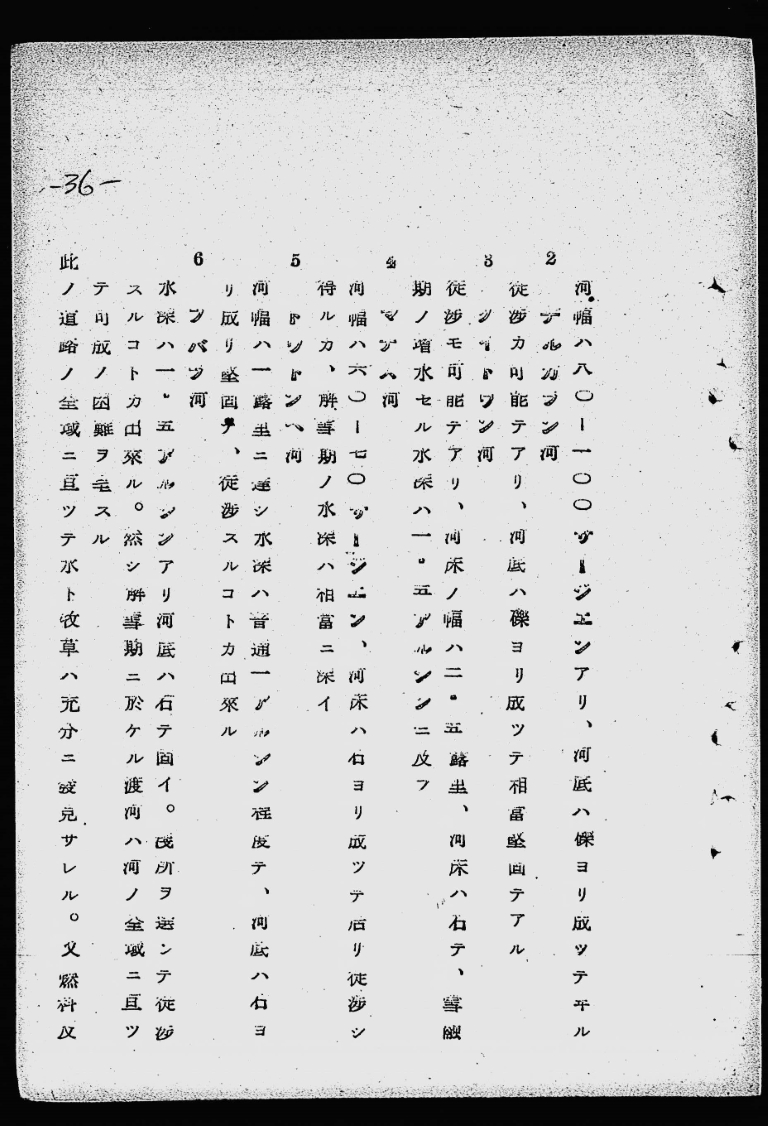 -36-
河幅ハ八〇ー一〇〇サージエンアリ、河底ハ礫ヨリ成ツテヰル
2 デルカブン河
徒渉カ可能テアリ、河底ハ礫ヨリ成ツテ相當堅固テアル
3 クイトウン河
徒渉モ可能テアリ、河床ノ幅ハ二・五露里、河床ハ石テ、雪融
期ノ增水セル水深ハ一・五アルシンニ及フ
4 マナス河
河幅ハ六〇ー七〇サージエン、河床ハ石ヨリ成ツテ居リ徒渉シ
得ルカ、解雪期ノ水深ハ相當ニ深イ
5 トウトンヘ河
河幅ハ一露里ニ達シ水深ハ普通一アルシン程度テ、河底ハ石ヨ
リ成リ堅固テ、徒渉スルコトカ出來ル
6 河
水深ハ一・五アルシンアリ河底ハ石テ固イ。淺所ヲ選ンテ徒渉
スルコトカ出來ル。然シ解雪期ニ於ケル渡河ハ河ノ全域ニ亘ツ
テ可成ノ困難ヲ毛スル
此ノ道路ノ全域ニ亘ツテ水ト牧草ハ充分ニ發見サレル。又燃料及